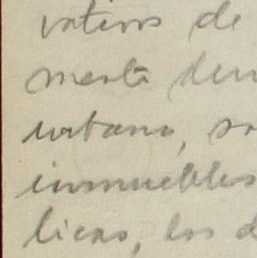 vativos de
mente den
urbano, so
inmuebles
licas, los d